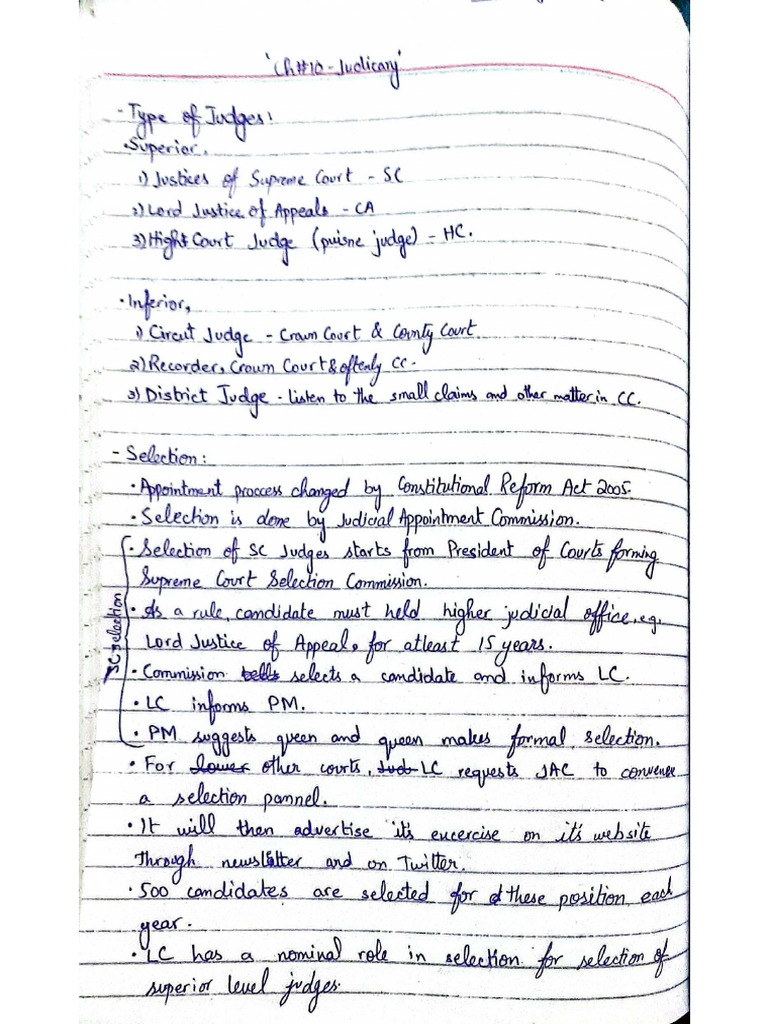 'Ch#10-Judicary'
- Type of Judges:
• Superior,
1) Justices of Supreme Court - SC
2) Lord Justice of Appeals - CA
3) High Court Judge (puisne judge) - HC.
• Inferior,
1) Circut Judge - Crown Court & County Court
2) Recorder, Crown Court & oftenly CC.
3) District Judge - listen to the small claims and other matter in CC.
- Selection:
• Appointment proccess changed by Constitutional Reform Act 2005.
• Selection is done by Judicial Appointment Commission.
• Selection of SC Judges starts from President of Courts forming
Supreme Court Selection Commission.
• As a rule, candidate must held higher judicial office, eg.
Lord Justice of Appeal, for atleast 15 years.
SC selection
• Commission tells selects a candidate and informs LC.
• LC informs PM.
• PM suggests queen and queen makes formal selection.
• For lower other courts, Jud LC requests JAC to convener
a selection pannel.
• It will then advertise it's excercise on it's website
Through newsletter and on Twitter.
• 500 candidates are selected for these position each
year.
• LC has a nominal role in selection for selection of
superior level judges.